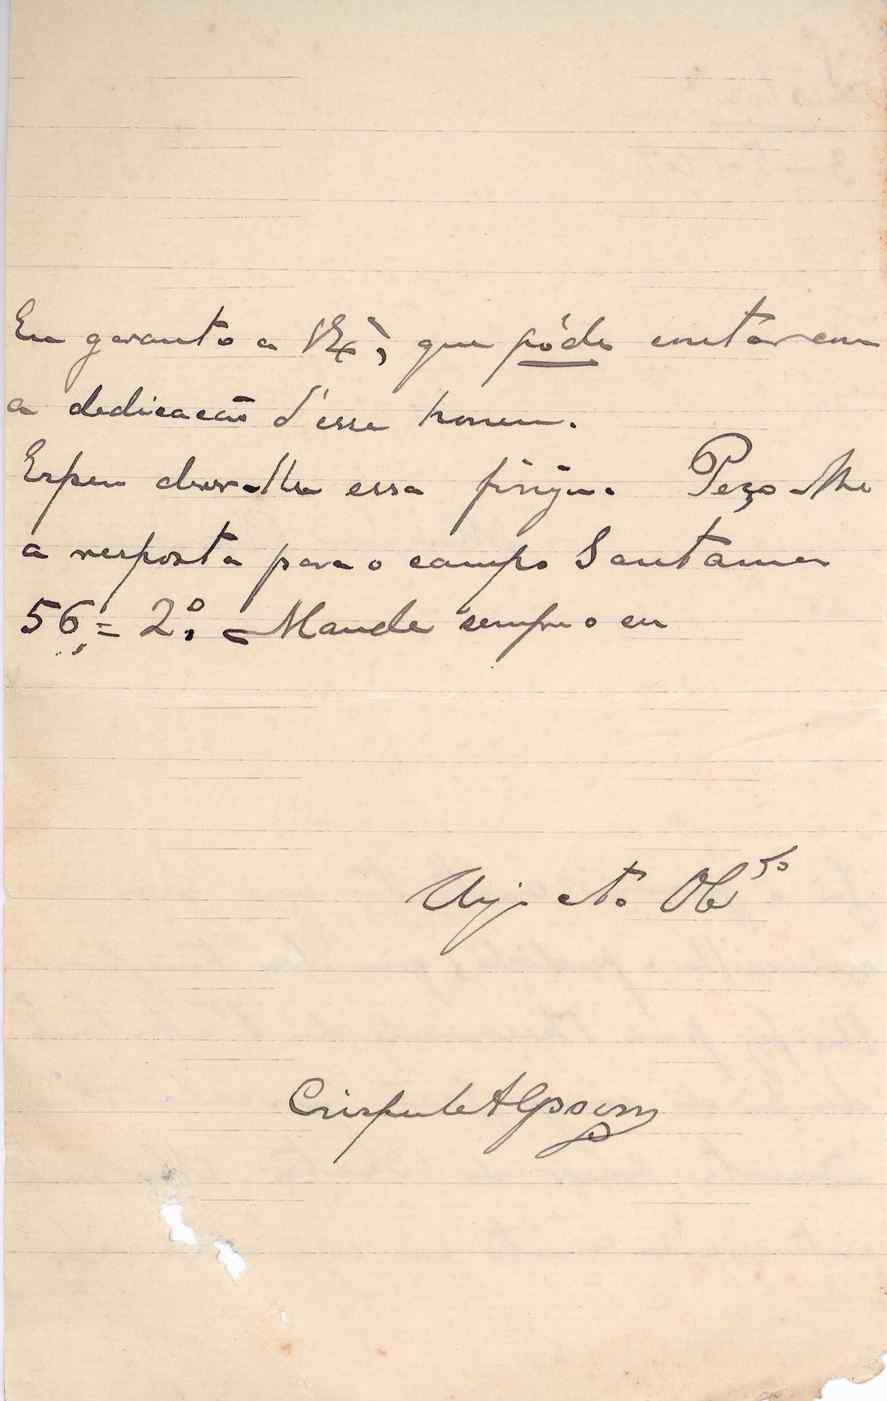 Eu garanto a VEx.ª, que póde contar com
a dedicação d'esse homem.
Espero dever-lhe essa fineza. Peço-lhe
a resposta para o campo Sant'anna
56, = 2º. Mande sempre o seu
Am.º e Att.º Ob.